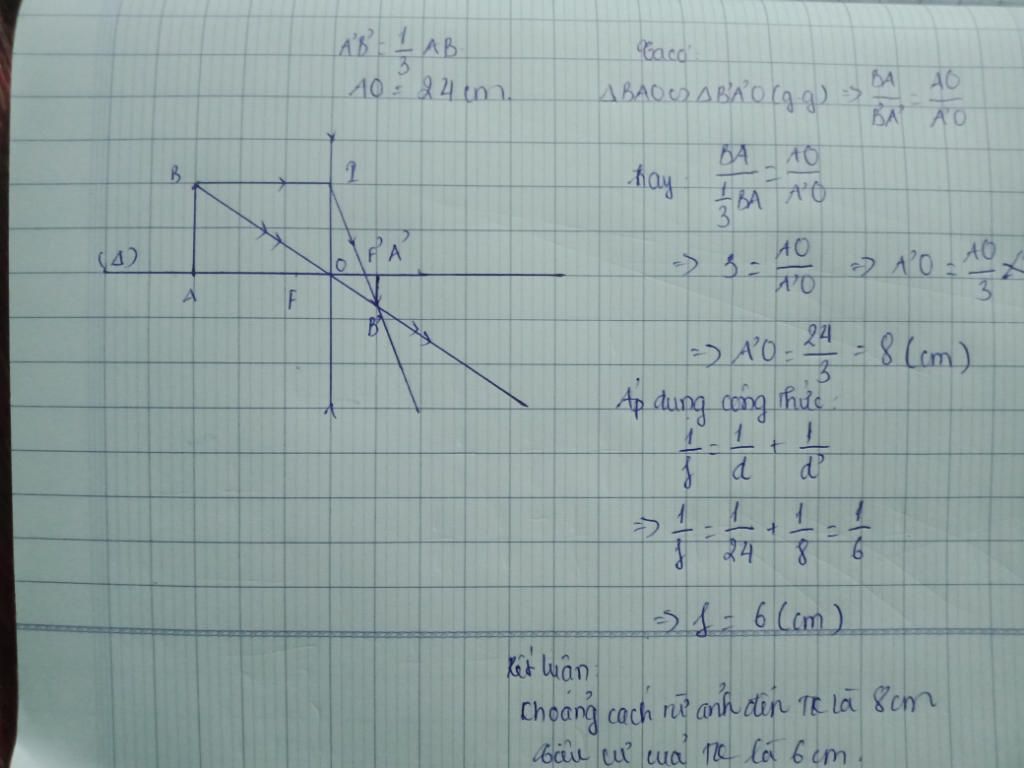 A'B' = 1/3 AB
AO = 24 cm.
B
I
(Δ)
O
F'
A'
A
F
B'
Ta có:
ΔBAO ∽ ΔB'A'O (g.g) => BA/B'A' = AO/A'O
hay BA/(1/3 BA) = AO/A'O
=> 3 = AO/A'O => A'O = AO/3
=> A'O = 24/3 = 8 (cm)
Áp dụng công thức:
1/f = 1/d + 1/d'
=> 1/f = 1/24 + 1/8 = 1/6
=> f = 6 (cm)
Kết luận:
Khoảng cách từ ảnh đến TK là 8cm
tiêu cự của TK là 6cm.